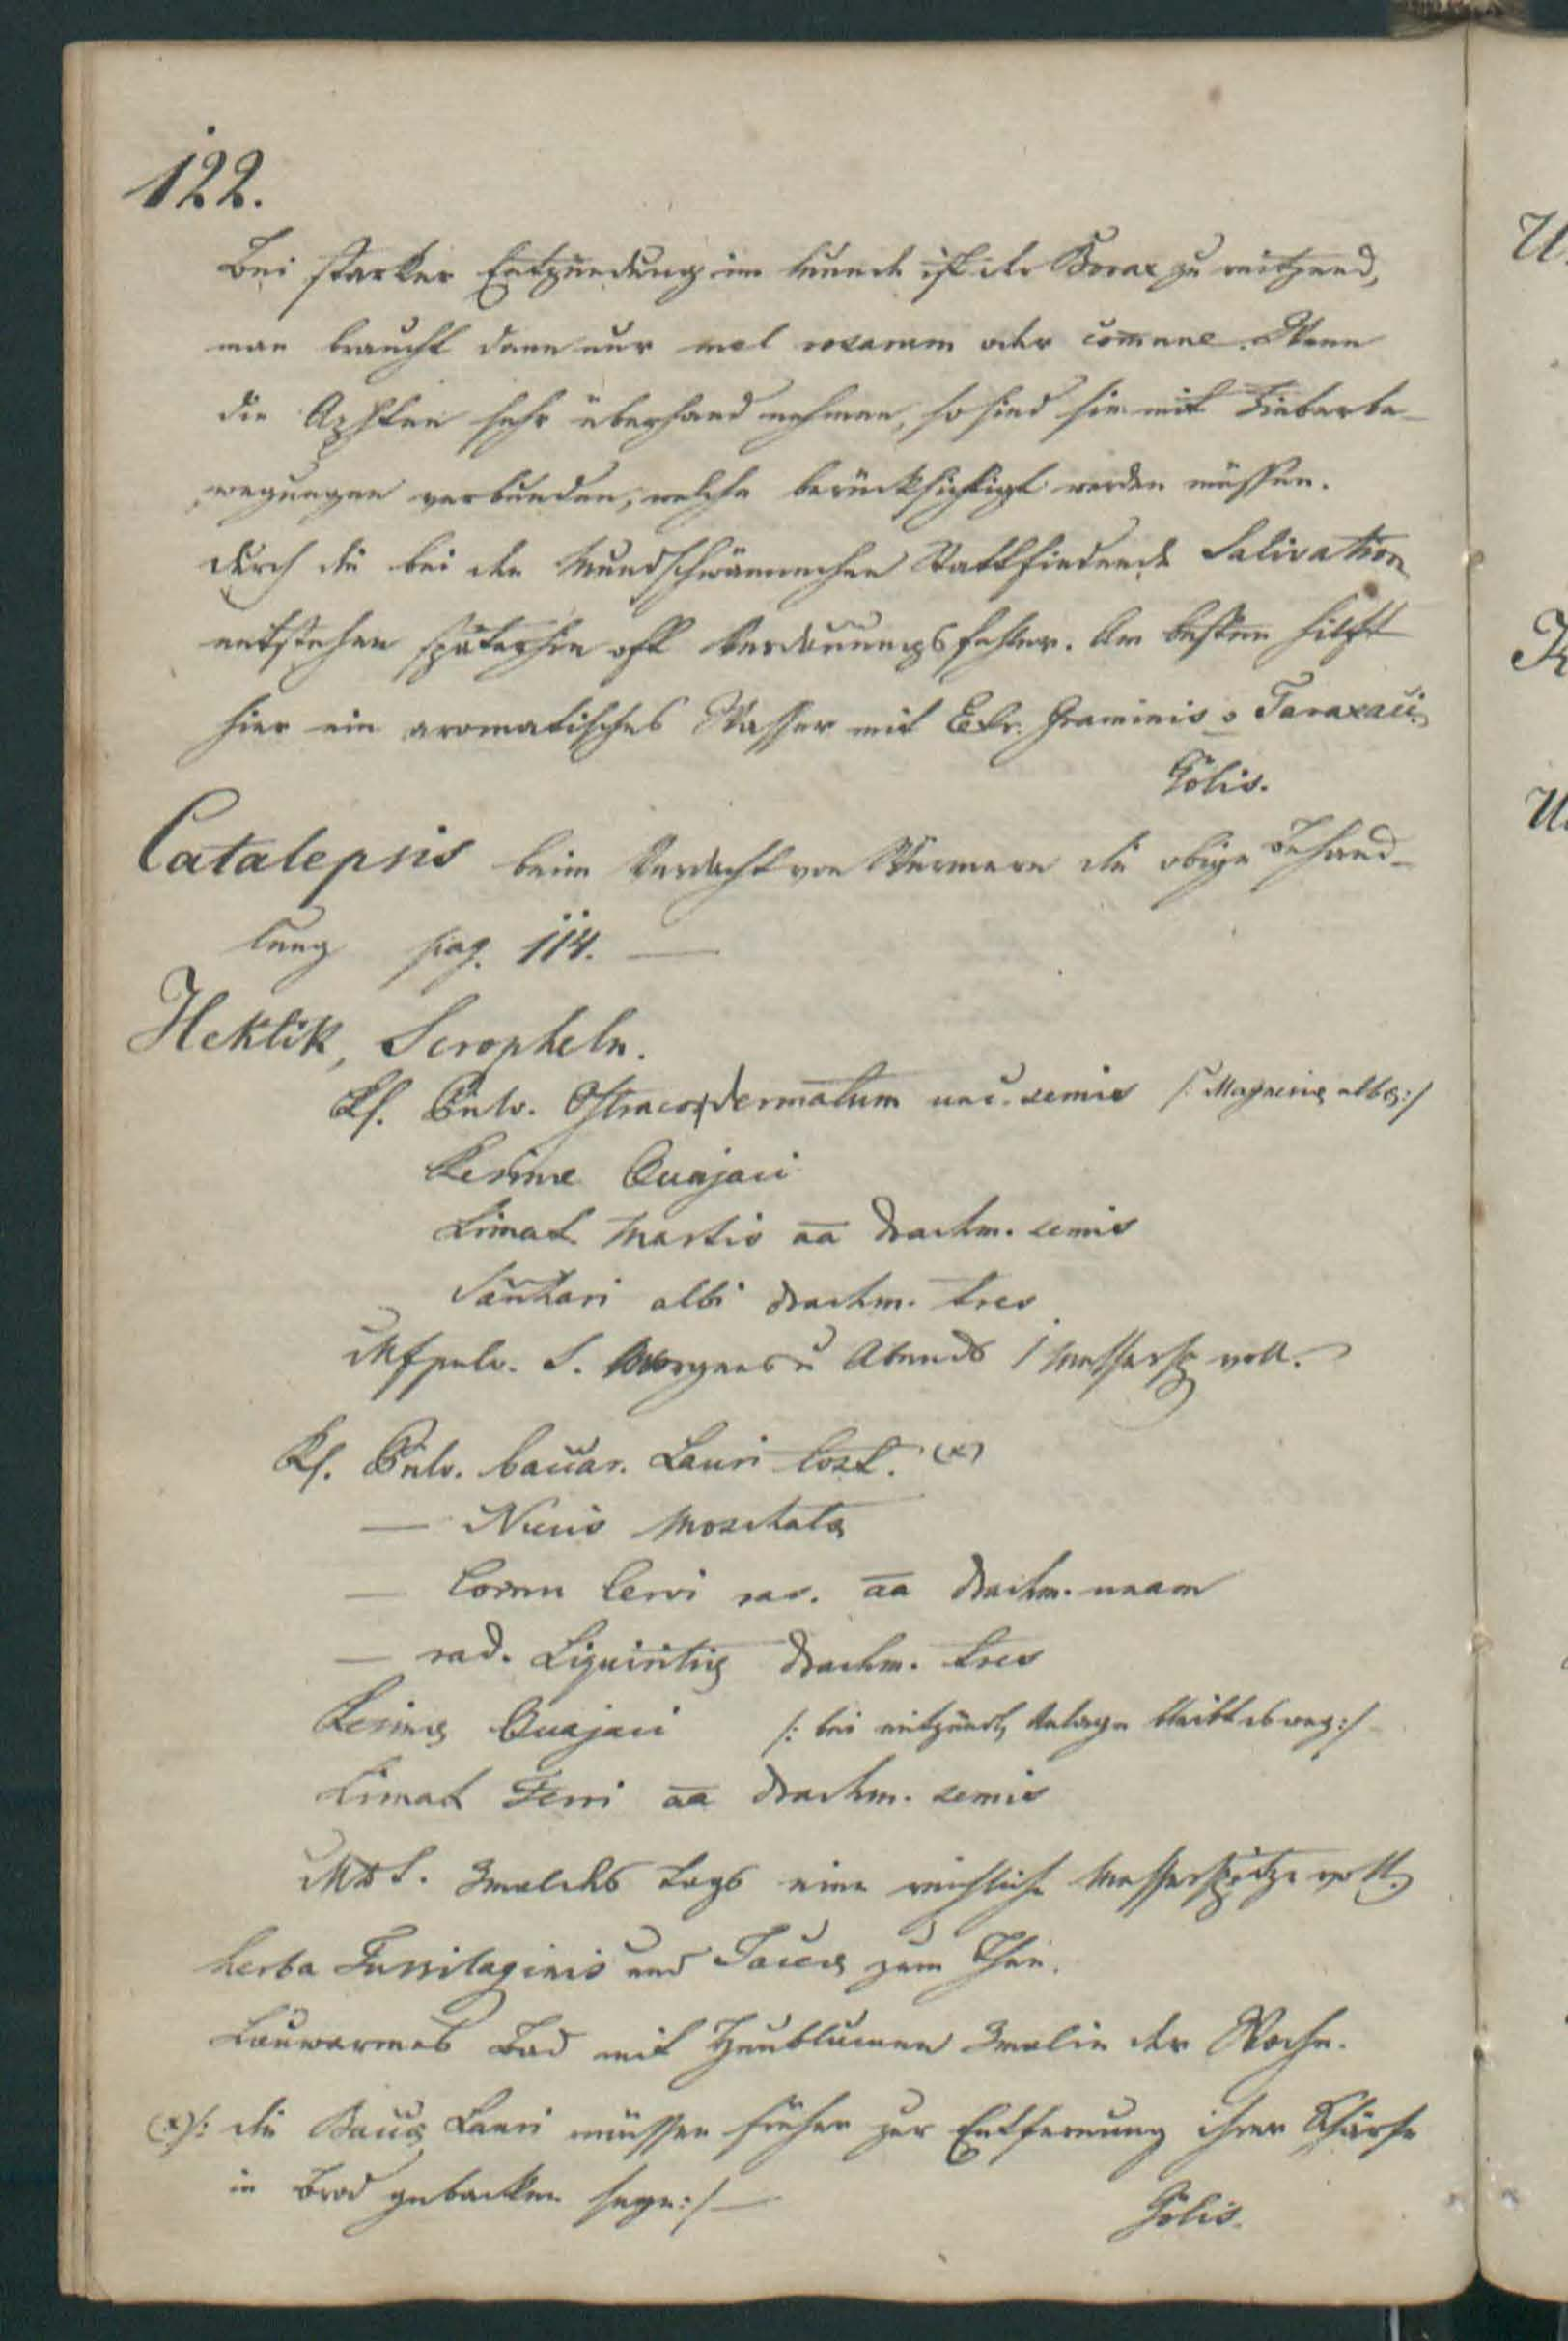 122.
Bei starker Entzündung im Munde ist der Borax zu reitzend,
man braucht dann nur mel rosarum oder comune. Wenn
die Aphten sehr überhand nehmen, so sind sie mit Fieberbe-
wegungen verbunden, welche berücksichtigt werden müssen.
durch die bei den Mundschwämmchen Stattfindende Salivation
entstehen späterhin oft Verdauungsfehler. Am besten hilft
hier ein aromatisches Wasser mit Extr. Graminis o Taraxaci.
Gölis.
Catalepsis beim Verdacht von Würmern die obige Behand-
lung pag. 114. —
Hektik, Scropheln.
Rf. Pulv. Ostracodermatum unc. semis /: Magnesiæ albæ:/
Resinæ Guajaci
Limat. Martis aa drachm. semis
Sacchari albi drachm. tres
Mfpulv. S. Morgens u Abends 1 Messersp voll.
Rf. Pulv. baccar. Lauri tost. (x)
— Nucis Moschatæ
— Cornu Cervi ras. aa drachm. unam
— rad. Liquiritiæ drachm. tres
Resinæ Guajaci /: bei entzündl. Anlage bleibt es weg:/
Limat Ferri aa drachm. semis
MDS. 3mal des Tags eine reichliche Messerspitze voll.
herba Tussilaginis und Jaceæ zum Thee.
Lauwarmes Bad mit Heublumen 3mal in der Woche.
(x)/: die Baccæ Lauri müssen früher zur Entfernung ihrer Schärfe
in Brod gebacken seyn:/ —
Gölis.